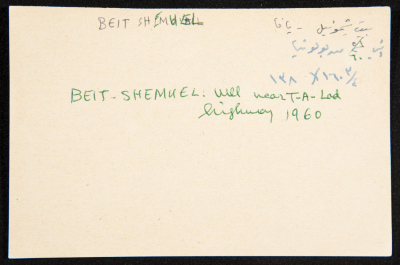 BEIT SHEMUEL
بيت شيموئيل - يافا
١٣٨ X ١٦٠٣/٤
BEIT-SHEMUEL. Well near T-A-Lod
highway 1960